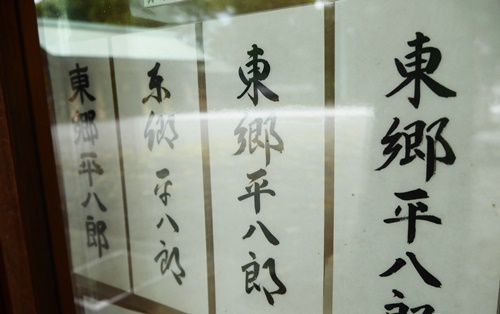 東郷平八郎
東郷平八郎
東郷平八郎
東郷平八郎